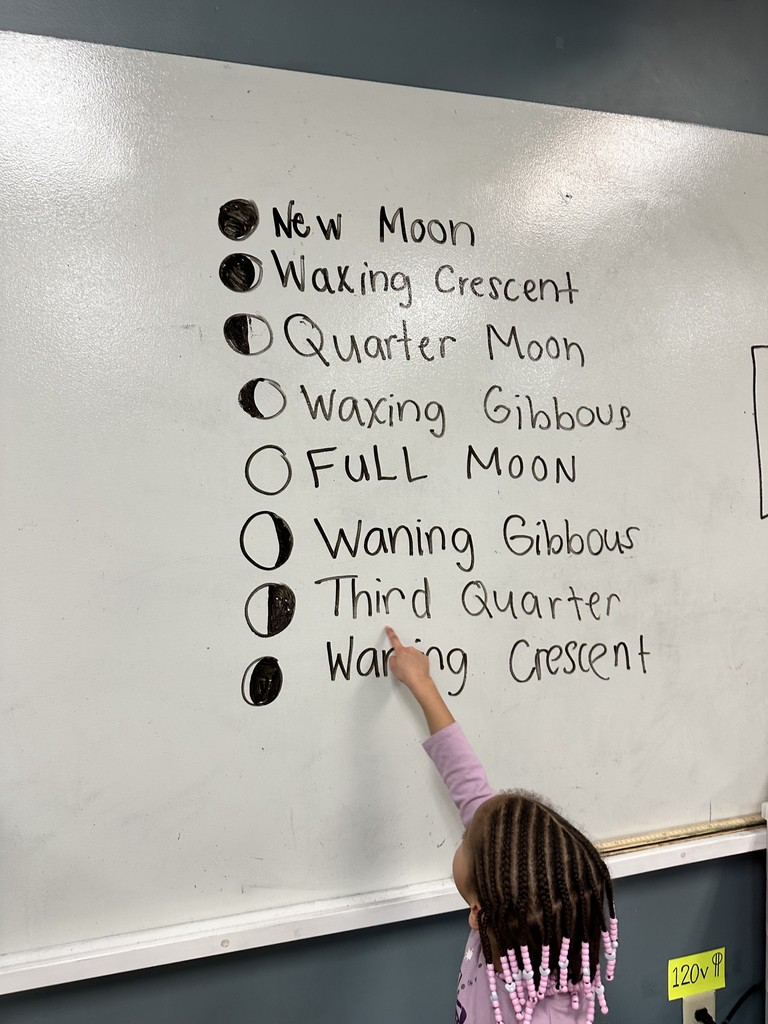 New Moon
Waxing Crescent
Quarter Moon
Waxing Gibbous
FULL MOON
Waning Gibbous
Third Quarter
Waning Crescent
120v